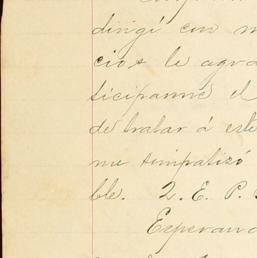 dirigí con m
cios le agra
ticiparme el
de tratar á este
me simpatizó
ble. Q. E. P.
Esperan